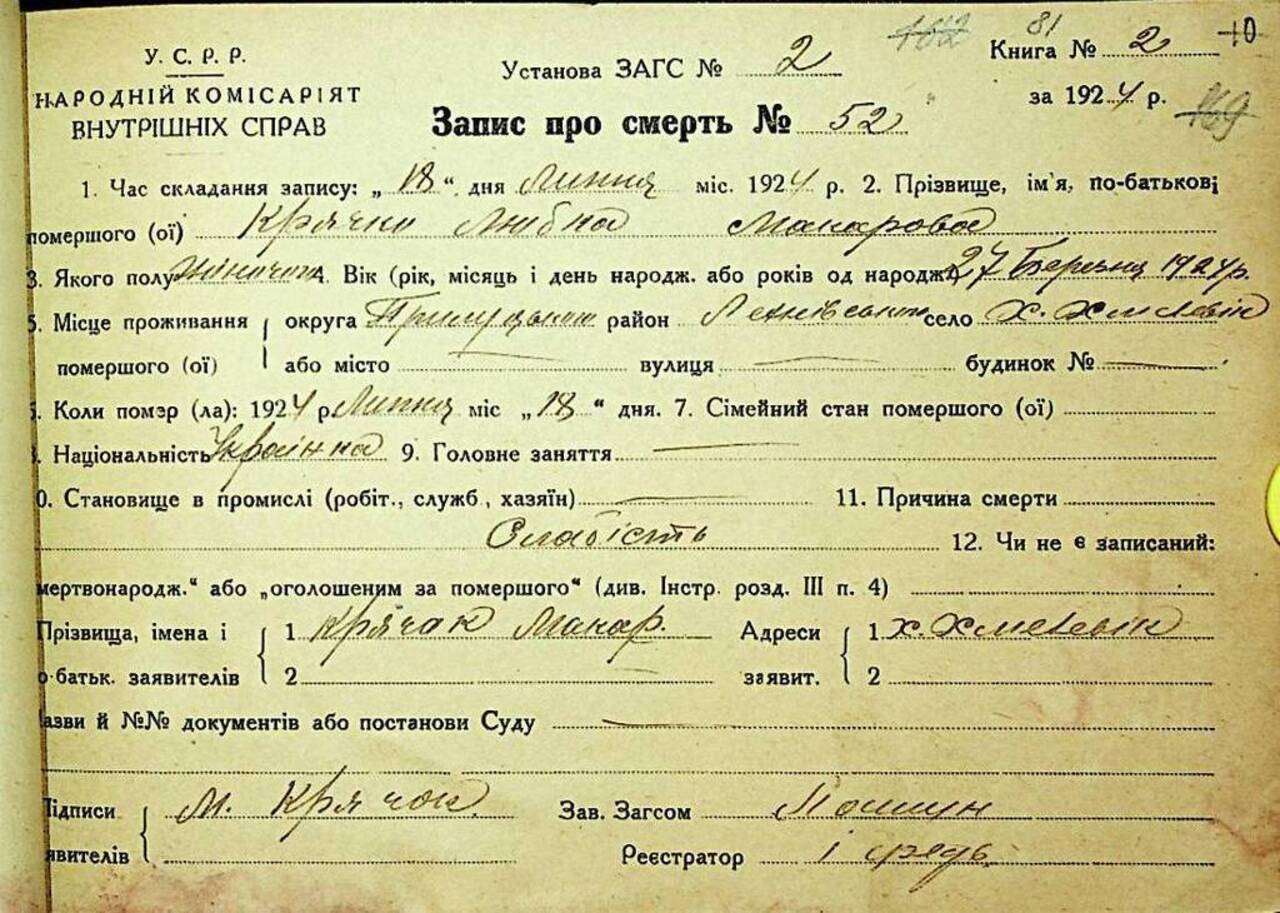 У. С. Р. Р.
НАРОДНІЙ КОМІСАРІЯТ
ВНУТРІШНІХ СПРАВ
Установа ЗАГС № 2
162
81
Книга № 2
10
за 1924 р.
169
Запис про смерть № 52
1. Час складання запису: „18“ дня Липня міс. 1924 р. 2. Прізвище, ім'я, по-батькові
помершого (ої) Любка Макарова
3. Якого полу жіночого 4. Вік (рік, місяць і день народж. або років од народж.) 27 Березня 1924 р.
5. Місце проживання округа Прилуцького район село Х. Хмелевік
помершого (ої) або місто вулиця будинок №
Коли помэр (ла): 1924 р. Липня міс „18“ дня. 7. Сімейний стан помершого (ої)
Національність Українка 9. Головне заняття
0. Становище в промислі (робіт., служб., хазяїн) 11. Причина смерти
Слабість 12. Чи не є записаний:
мертвонародж.“ або „оголошеним за помершого“ (див. Інстр. розд. III п. 4)
Прізвища, імена і 1 Крячок Макар. Адреси 1 х. Хмелевік
о-батьк. заявителів 2 заявит. 2
азви й №№ документів або постанови Суду
Підписи М. Крячок. Зав. Загсом
явителів Реєстратор